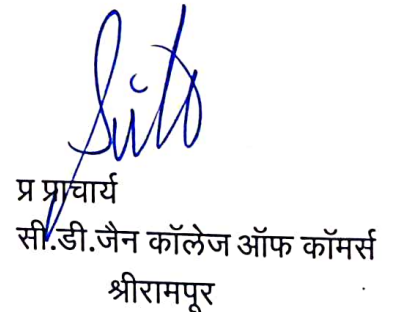 प्र प्राचार्य
सी.डी.जैन कॉलेज ऑफ कॉमर्स
श्रीरामपूर